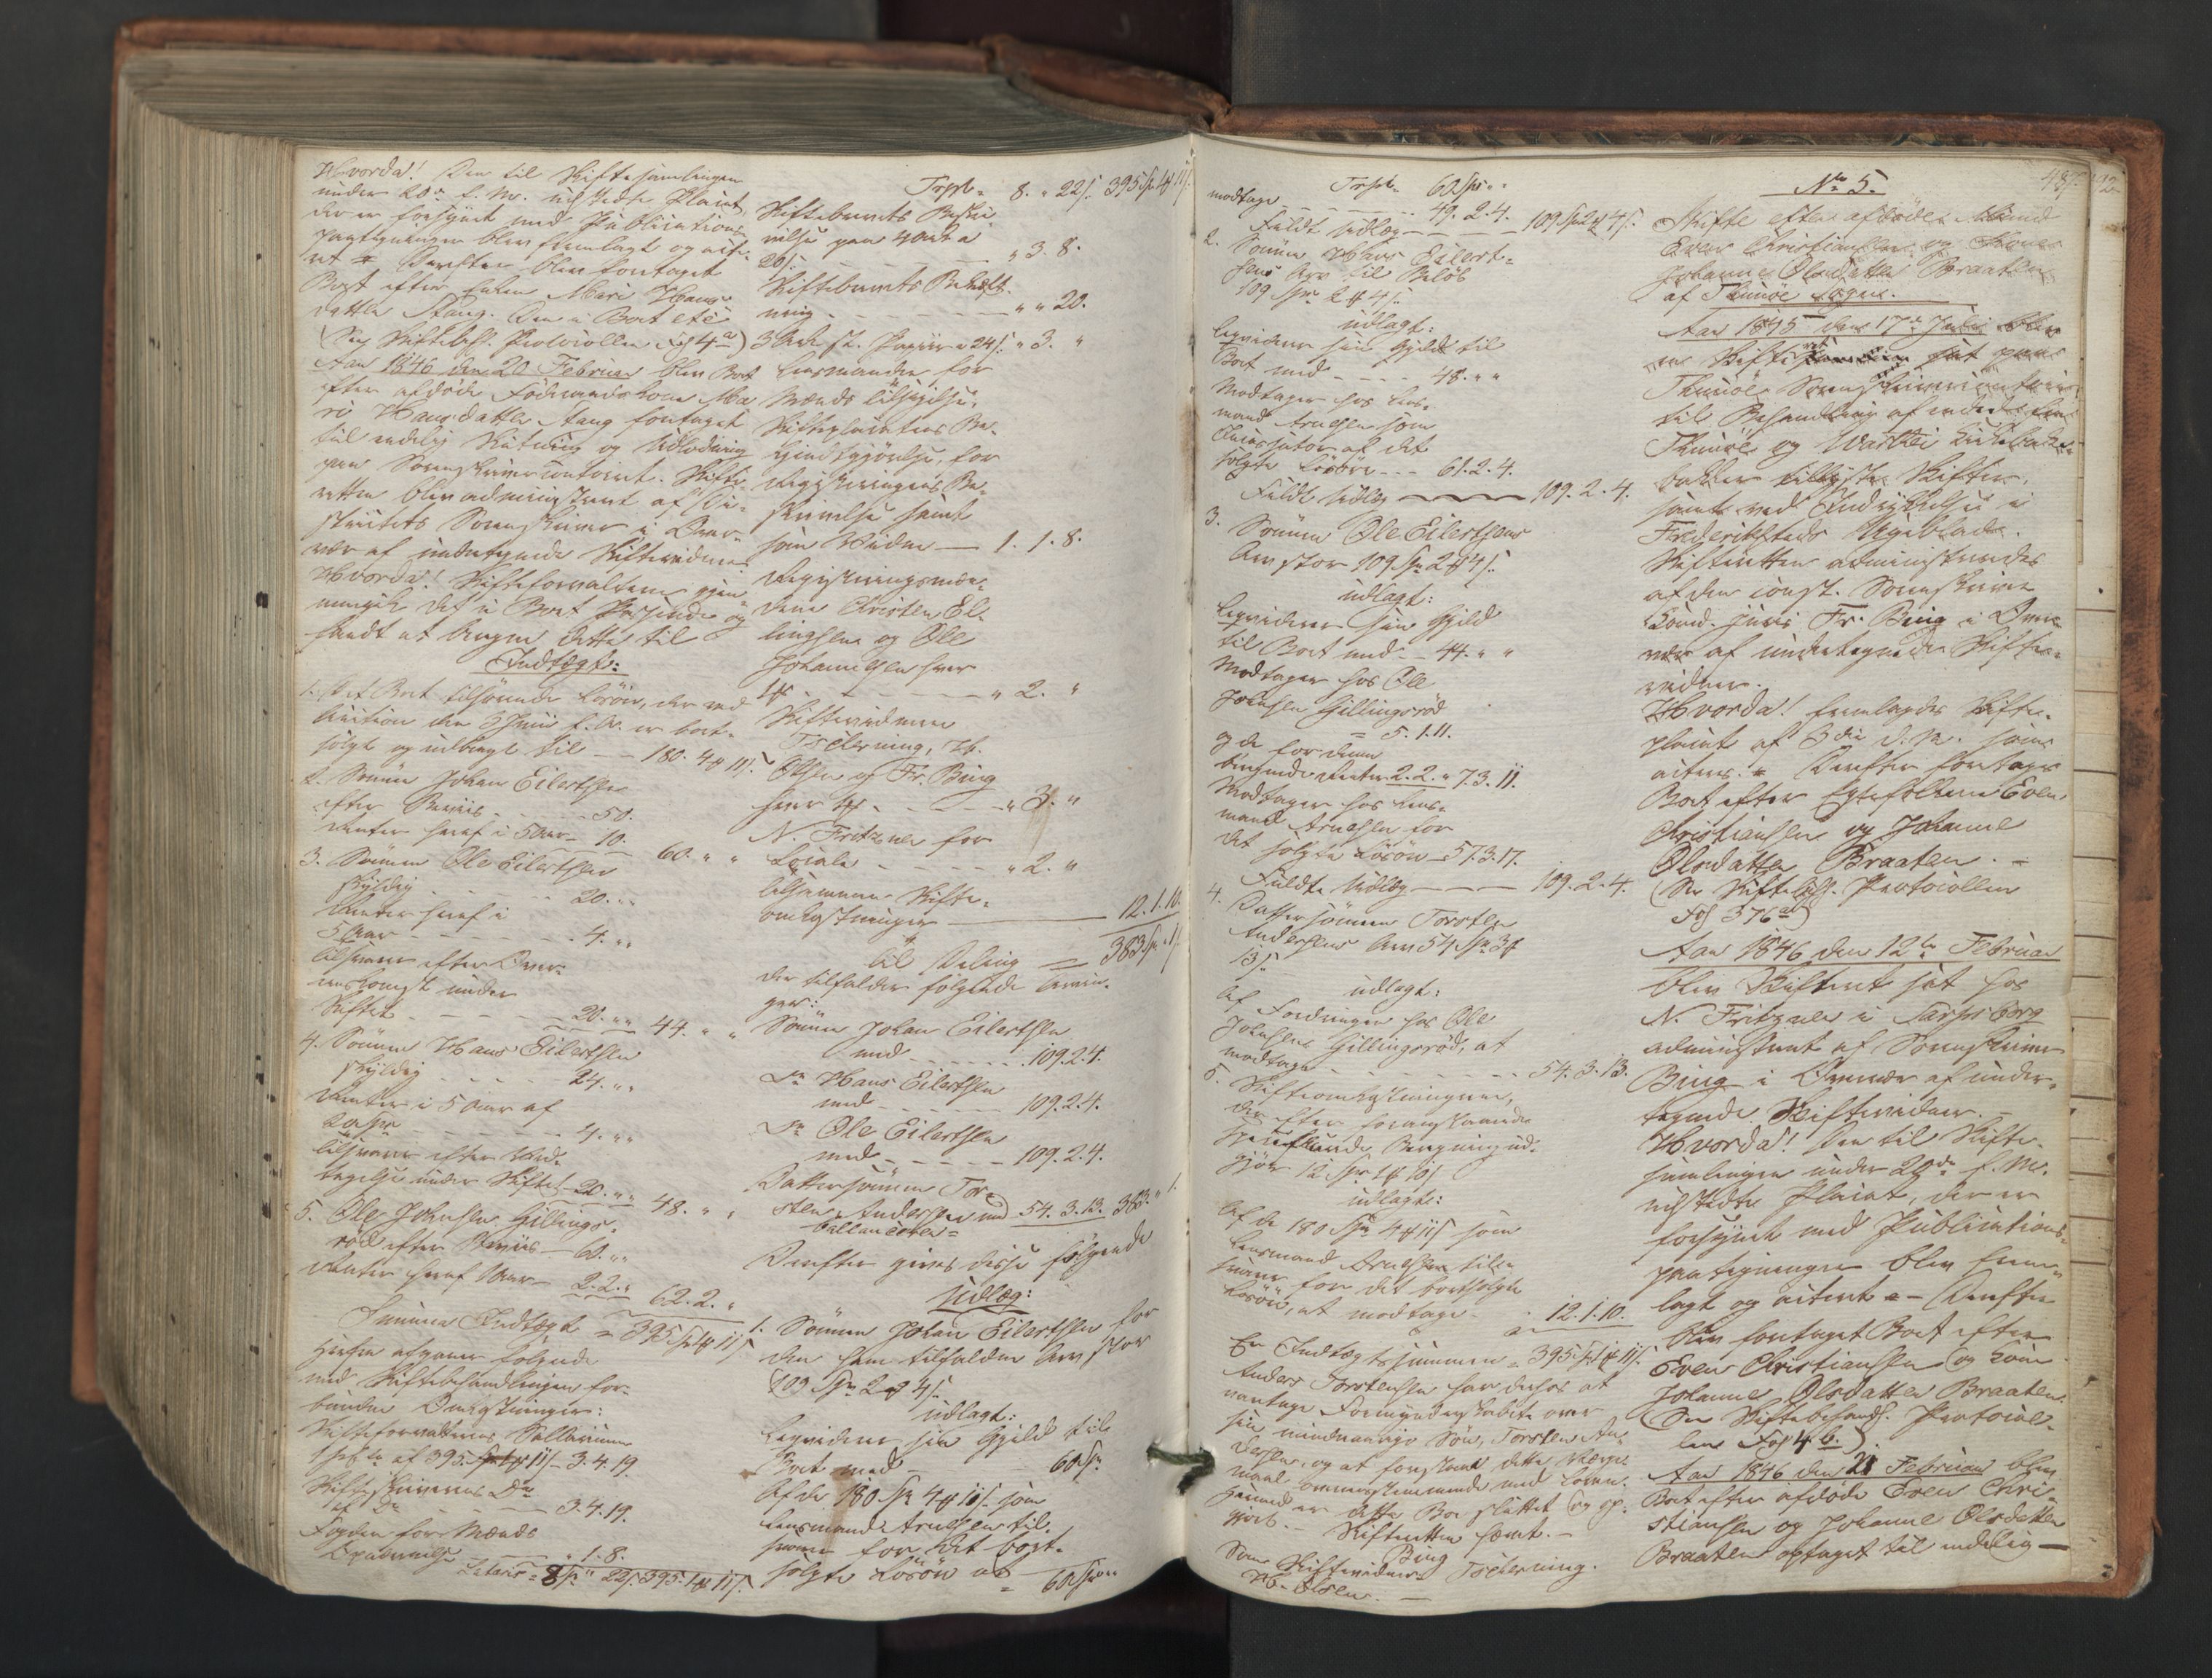 Hvorda! Den til Skiftesamlingen
under 20de f. M. udstedte Placat,
der er forsynet med Publications
paategninger blev fremlagt og acte-
ret. Derefter blev foretaget
Boet efter Enken Mari Hans-
datter Stang. Den i Boet etc
(See Skiftebeh. Protocollen fol 4a)
Aar 1846 den 20 Februar blev Boet
efter afdöde Födraadskone Ma-
ri Hansdatter Stang foretaget
til endelig Slutning og Udlodning
paa Sorenskrivercontoiret. Skifte-
retten blev administreret af Di-
strictets Sorenskriver i Over-
vær af undertegnede Skiftevidner
Hvorda! Skifteforvalteren gjen-
nemgik det i Boet Passerede og
fandt at angive dette til
Indtægt:
1. Det Boet tilhörende Lösöre, der ved
Auction den 3 Juni f. A. er bort-
solgt og udbragt til - - 180. 4 # 11 s.
2. Sönnen Johan Eilertsen
efter Beviis - - - 50.
Renter heraf i 5 Aar - 10. 60. " "
3. Sönnen Ole Eilertsen
skyldig - - - 20. " "
Renter heraf i
5 Aar - - - 4. " "
Tilsvarer efter Over-
enskomst under
Skiftet - - - 20. " " 44. " "
4. Sönnen Hans Eilertsen
skyldig - - - 24. " "
Renter i 5 Aar af
20 Spd - - - 4. " "
Tilsvarer efter Ved-
tagelse under Skiftet - 20. " " 48. " "
5. Ole Johnsen Gillings-
röd efter Beviis - 60. " "
Renter heraf 1 Aar - 2. 2. " 62. 2. "
Summa Indtægt = 395 Spd 1 # 11 s
Herfra afgaaer følgende
med Skiftebehandlingen for-
bundne Omkostninger:
Skifteforvalterens Sallarium
af 395 Spd 1 # 11 s - 3. 4. 19.
Skifteskriverens Do
af Do - - - 3. 4. 19.
Fogden for Mænds
Opnævnelse - - " 1. 8.
Lateris = 8 Spd " 22 s. 395. 1 # 11 s.
Trspt. 8. " 22 s. 395 Spd 1 # 11 s.
Skiftebrevets Beskri-
velse paa 4 Ark a
26 s. - - - " 3. 8.
Skiftebrevets Bekræft-
ning - - - " " 20.
3 Ark st. Papiir a 24 s. " 3. "
Lensmanden for
Mænds Tilsigelse,
Skifteplacatens Be-
kjendtgjörelse, for
Registreringens Be-
skrivelse samt
som Vidne — 1. 1. 8.
Registreringsmæn-
dene Christen El-
lingsen og Ole
Johannesen hver
1 # - - - " 2. "
Skiftevidnerne
Tschierning, H.
Olsen og Fr. Bing
hver 1 # - - - " 3. "
N. Fritzner for
Locale - - - " 2. "
Tilsammen Skifte-
omkostninger — 12. 1. 10.
til Deling = 383 Spd " 1 s
der tilfalder følgende Arvin-
ger:
Sönnen Johan Eilertsen
med - - - 109. 2. 4.
Do Hans Eilertsen
med - - - 109. 2. 4.
Do Ole Eilertsen
med - - - 109. 2. 4.
Dattersönnen Tor-
sten Andersen med 54. 3. 13. 383. " 1.
ballancerer =
Derefter gives disse følgende
Udlæg:
1. Sönnen Johan Eilertsen for
den ham tilfaldne Arv stor
109 Spd 2 # 4 s.
udlagt:
Liqviderer sin Gjeld til
Boet med - 60 Spd
Af de 180 Spd 4 # 11 s. som
Lensmand Arnesen til-
svarer for det bort-
solgte Lösöre at
= 60 Spd " "
Trspt. 60 Spd " "
modtage - - - 49. 2. 4.
Fuldt Udlæg - - - 109 Spd 2 # 4 s.
2. Sönnen Hans Eilert-
sens Arv til Belöb
109 Spd 2 # 4 s.
udlagt:
Liqviderer sin Gjeld til
Boet med - - - 48. " "
Modtager hos Lens-
mand Arnesen som
Incassator af det
solgte Lösöre - - - 61. 2. 4.
Fuldt Udlæg — 109. 2. 4.
3. Sönnen Ole Eilertsens
Arv stor 109 Spd 2 # 4 s.
udlagt:
Liqviderer sin Gjeld
til Boet med - - 44. " "
Modtager hos Ole
Johnsen Gillingsröd
= 5. 1. 11.
og de for denne
beregnede Renter 2. 2. " 7. 3. 11.
Modtager hos Lens-
mand Arnesen for
det solgte Lösöre - 57. 3. 17.
Fuldt Udlæg — 109. 2. 4.
4. Dattersönnen Torsten
Andersens Arv 54 Spd 3 #
13 s
udlagt:
Af Fordringen hos Ole
Johnsen Gillingsröd, at
modtage - - - 54. 3. 13.
5. Skifteomkostningerne,
der efter foranstaaende
specificerede Beregning ud-
gjör 12 Spd 1 # 10 s
udlagt:
Af de 180 Spd 4 # 11 s som
Lensmand Arnesen til-
svarer for det bortsolgte
Lösöre, at modtage - 12. 1. 10.
Er Indtægtssummen = 395 Spd 1 # 11 s.
Anders Torstensen har derhos at
varetage Formynderskabet over
sin mindreaarige Sön, Torsten An-
dersen, og at forestaae dette Værge-
maal overensstemmende med Loven.
Hermed er dette Bo sluttet og op-
gjort. - Skifteretten hævet. -
Bing
Som Skiftevidner: Tschierning.
H. Olsen. —
No 5.
Skifte efter afdöde Mand
Even Christiansen og Kone
Johanne Olsdatter Braaten
af Thunöe Sogn.
Aar 1845 den 17de Juli blev
en Skifteret sat paa
Thunöe Sorenskrivercontoir
til Behandling af endeel fra
Thunöe og Varteig Kirkebak-
bakker tillyste Skifter,
samt ved Indrykkelse i
Frederikstads Ugeblad.
Skifteretten administreredes
af den const. Sorenskriver
Cand. juris Fr. Bing i Over-
vær af undertegnede Skifte-
vidner.
Hvorda! fremlagdes Skifte-
placat af 3die d. M. som
acteres. Derefter foretages
Boet efter Egtefolkene Even
Christiansen og Johanne
Olsdatter Braaten. -
(See Skiftebeh. Protocollen
Fol 376)
Aar 1846 den 12te Februar
blev Skifteret sat hos
N. Fritzner i Sarpsborg
administreret af Sorenskriver
Bing i Overvær af under-
tegnede Skiftevidner. -
Hvorda! Den til Skifte-
samlingen under 20de f. M.
udstedte Placat, der er
forsynet med Publications-
paategninger blev frem-
lagt og acteret. - Derefter
blev foretaget Boet efter
Even Christiansen og Kone
Johanne Olsdatter Braaten.
(See Skiftebehandl. Protocol-
len Fol 4 b.)
Aar 1846 den 21 Februar blev
Boet efter afdöde Even Chri-
stiansen og Johanne Olsdatter
Braaten optaget til endelig —